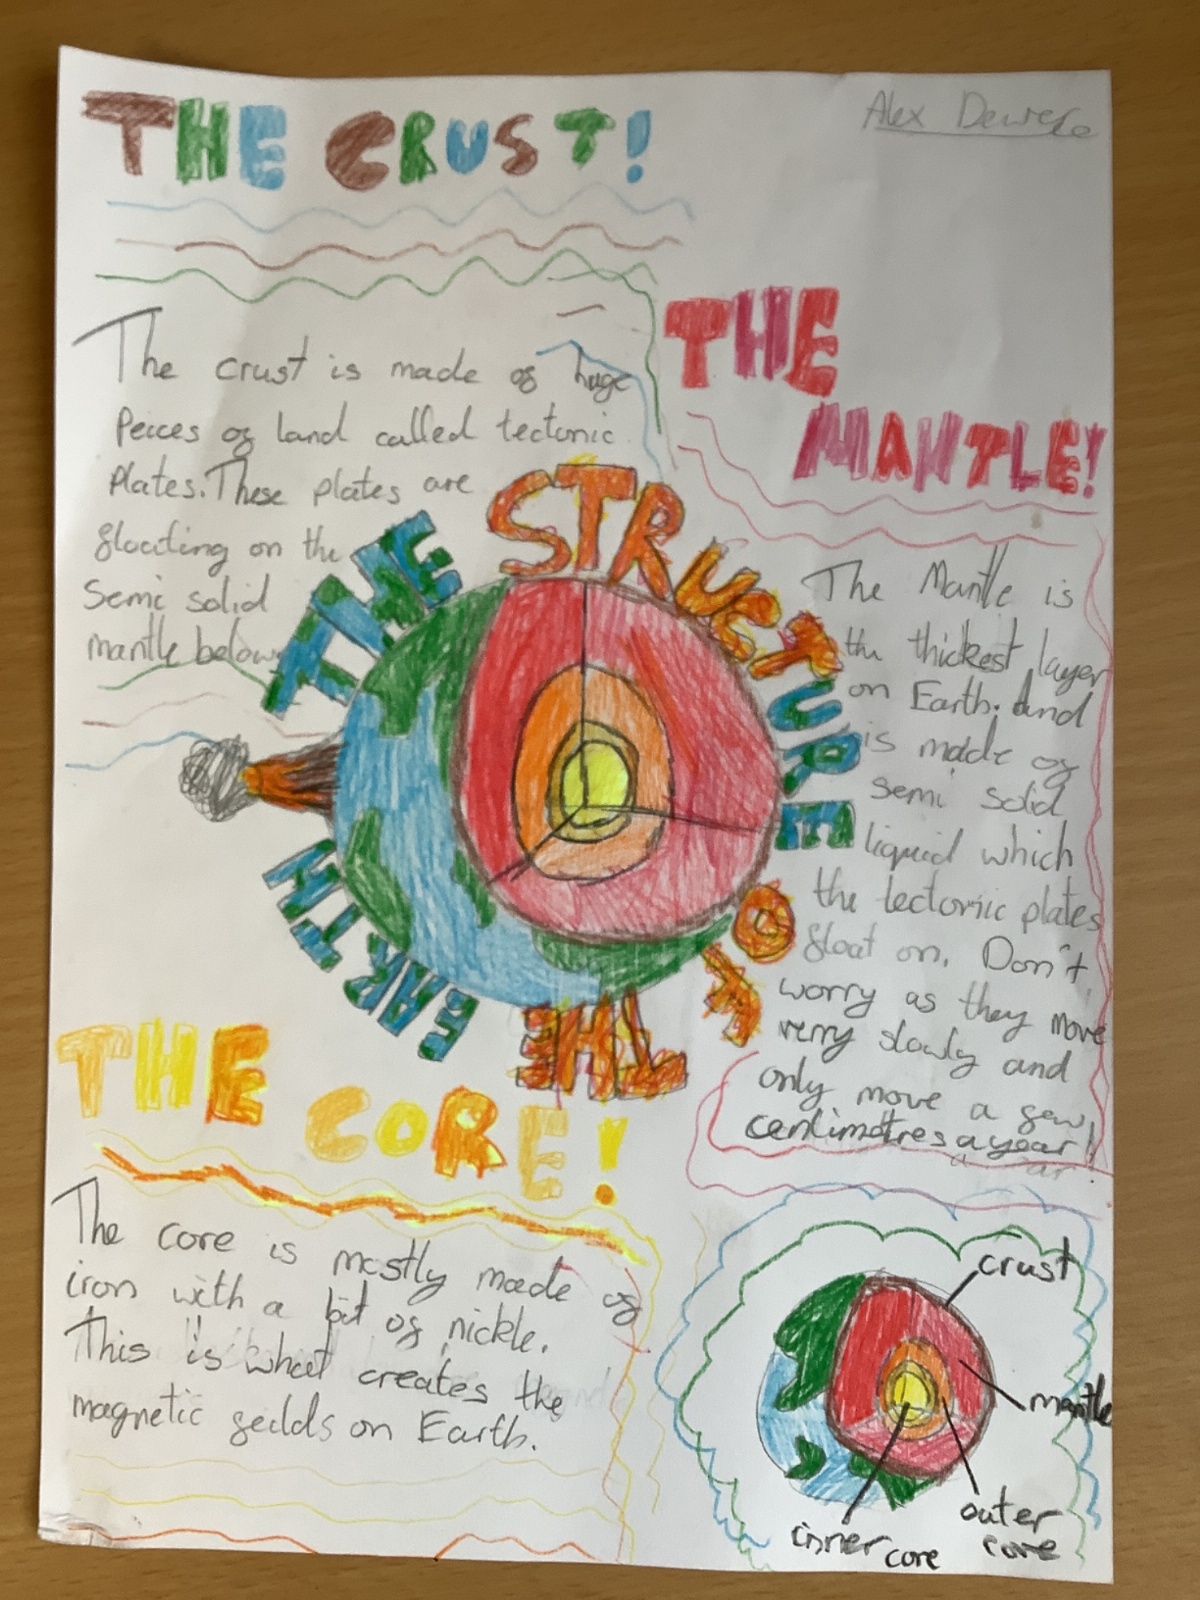 Alex
THE CRUST!
The crust is made of huge
Peices of land called tectonic
Plates. These plates are
floating on the
Semi solid
mantle below
THE
MANTLE!
The Mantle is
the thickest layer
on Earth. And
is made of
semi solid
liquid which
the tectonic plates
float on. Don't
worry as they move
verry slowly and
only move a few
centimetres a year!
THE STRUCTURE OF THE EARTH
THE CORE!
The core is mostly made of
iron with a bit of nickle.
This is what creates the
magnetic feilds on Earth.
crust
mantle
outer
core
inner core